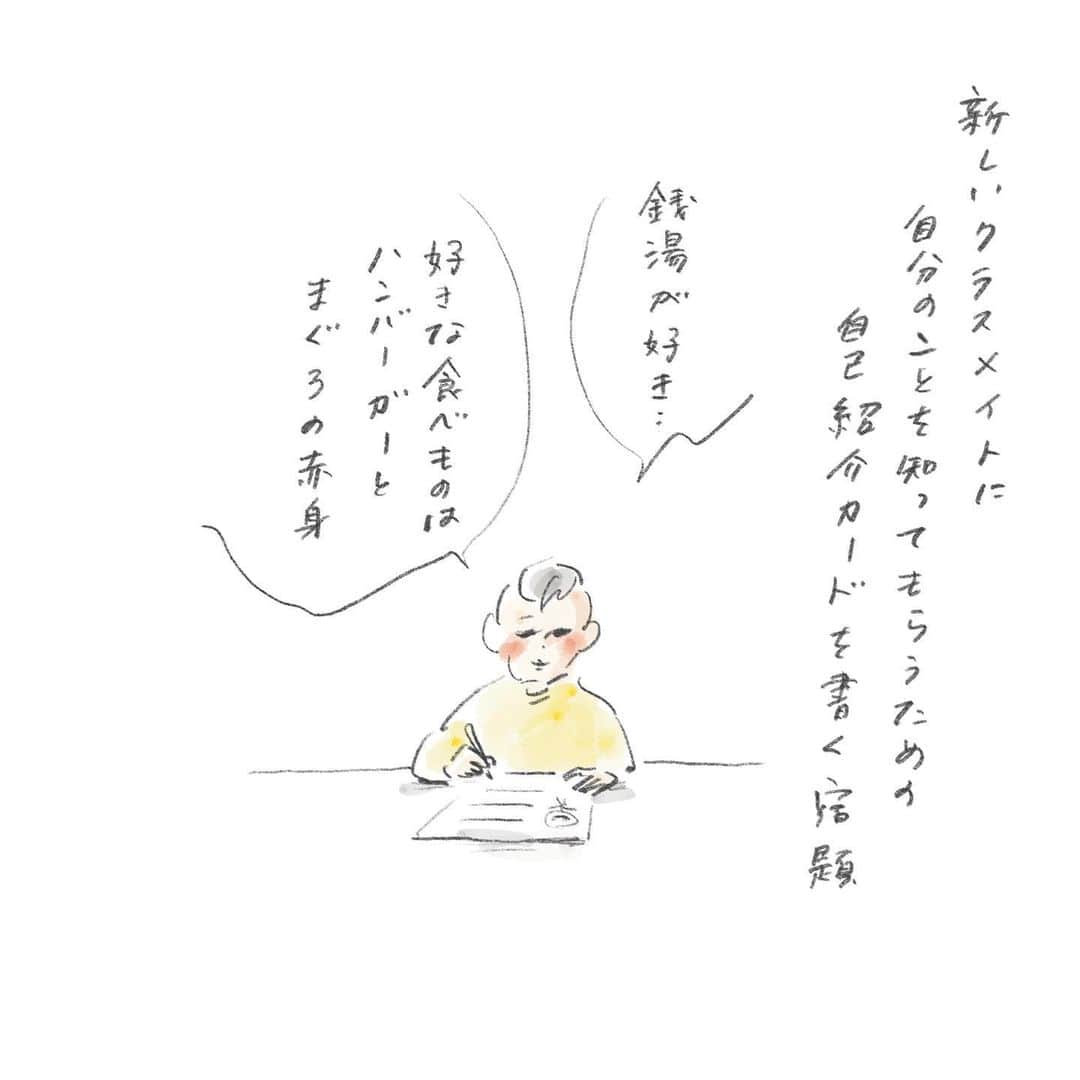 新しいクラスメイトに
自分のことを知ってもらうための
自己紹介カードを書く宿題
銭湯が好き…
好きな食べものは
ハンバーガーと
まぐろの赤身